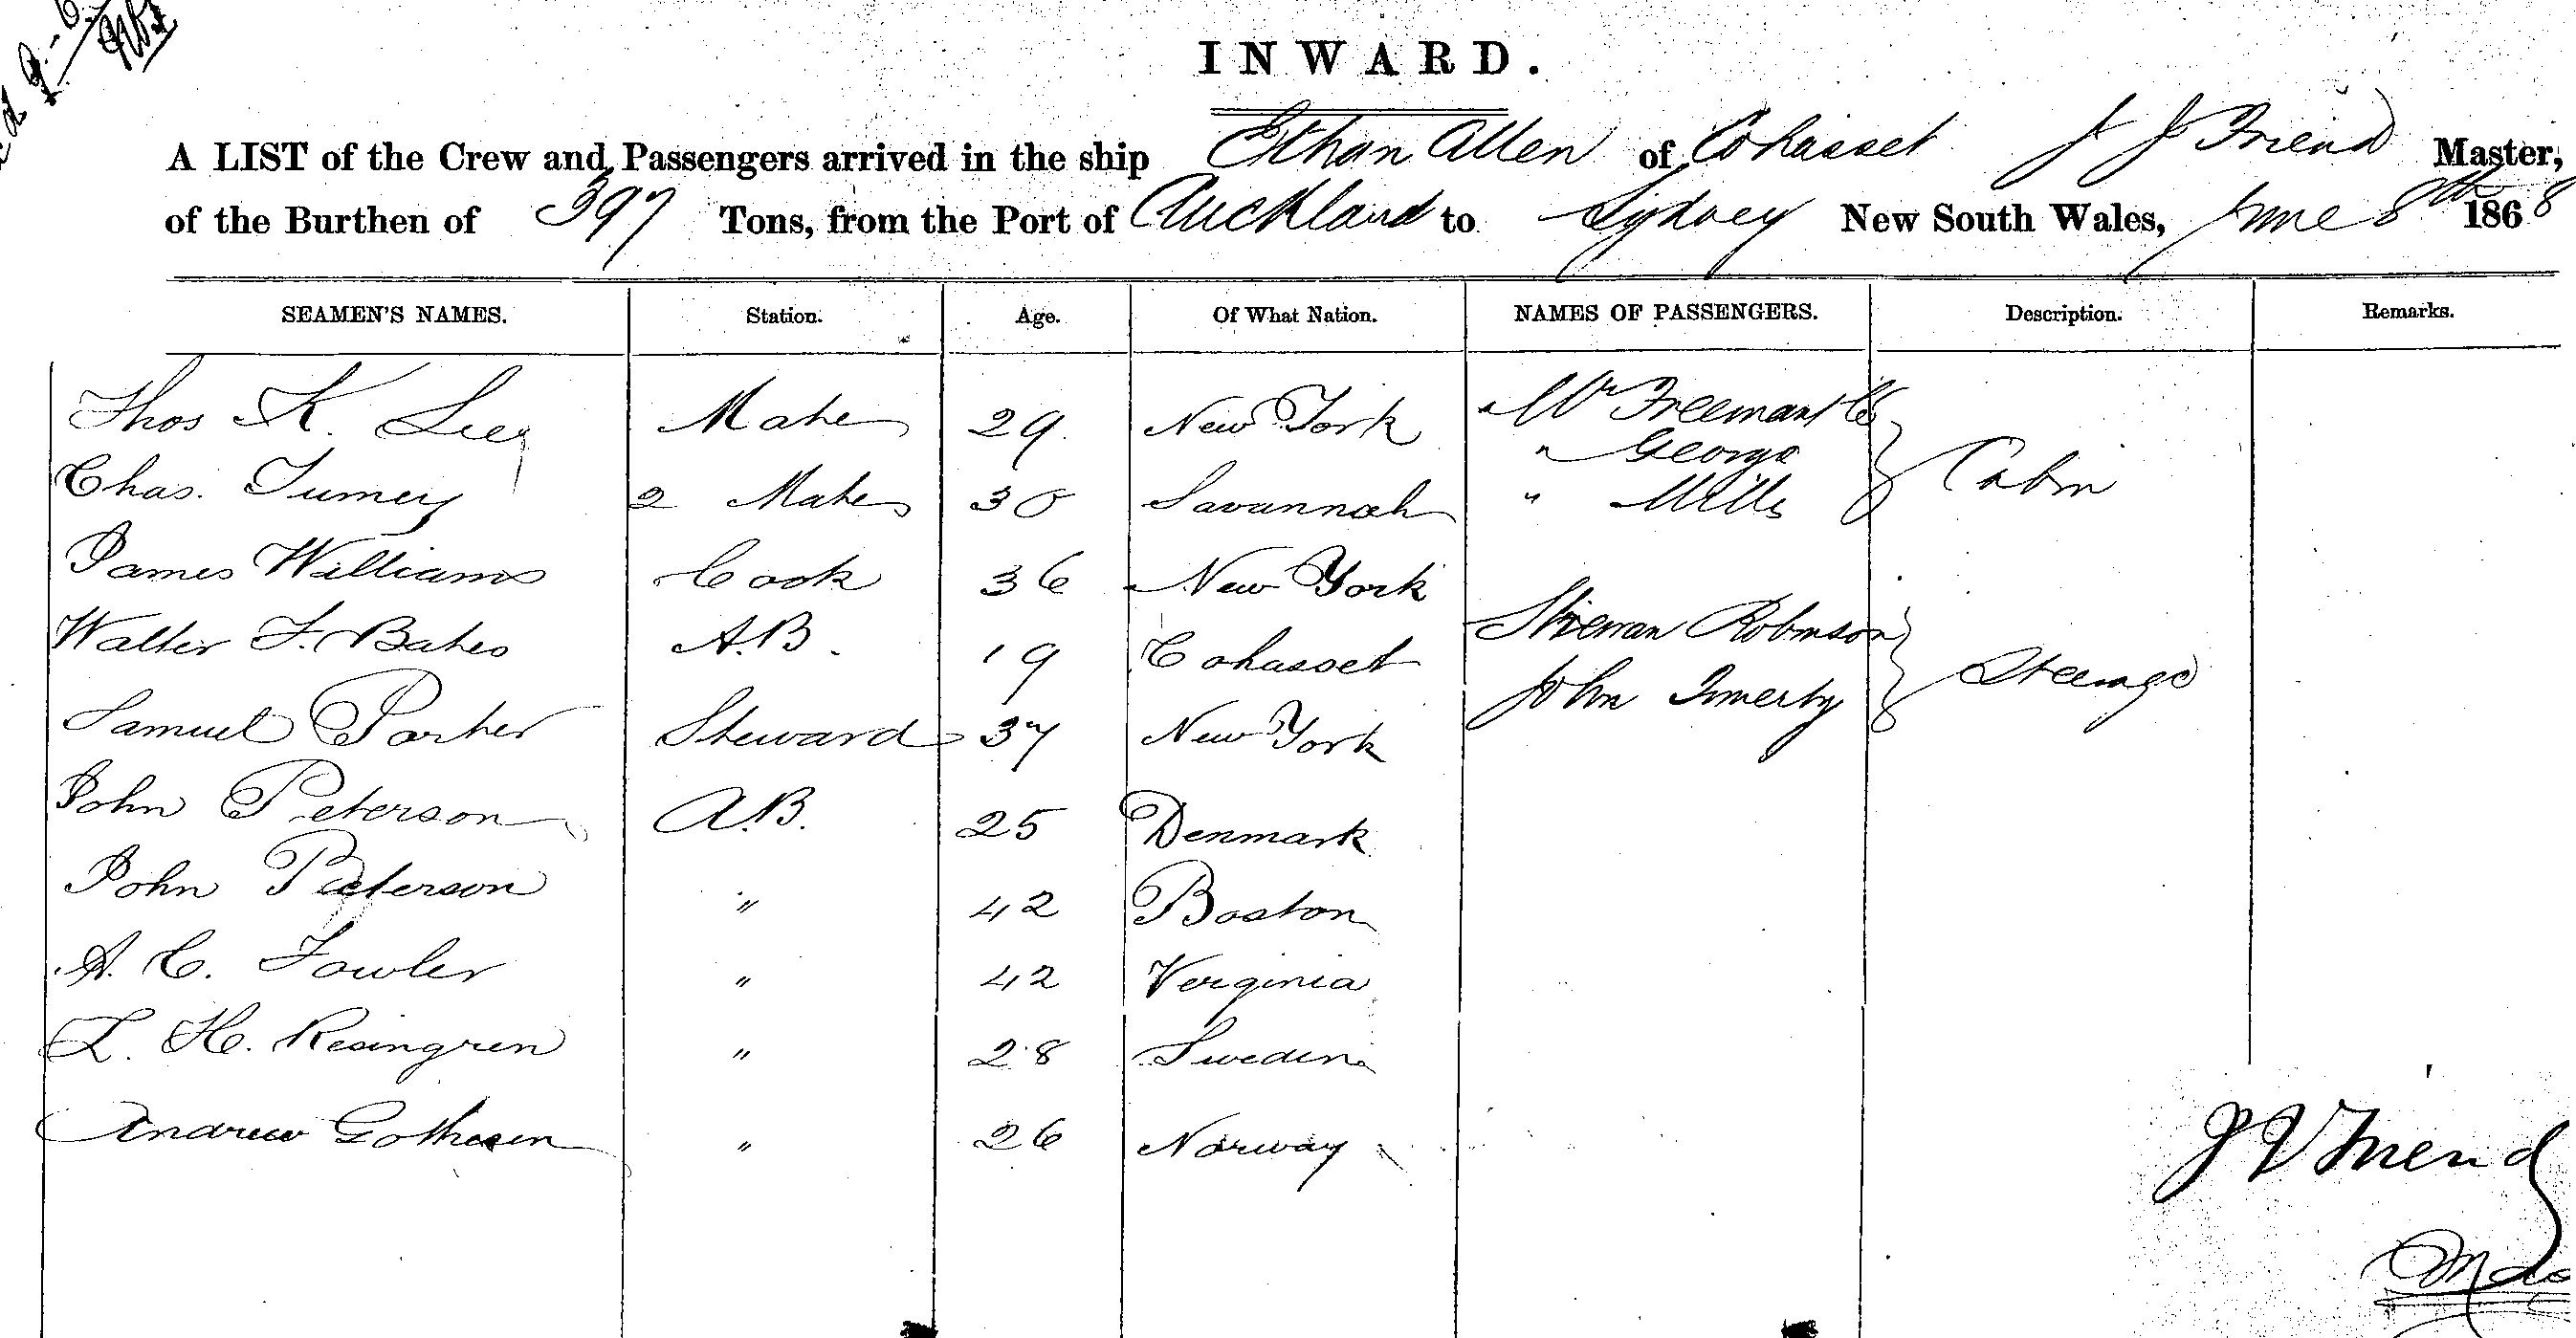 INWARD.
A LIST of the Crew and Passengers arrived in the ship Ethan Allen of Cohasset J J Friend Master,
of the Burthen of 397 Tons, from the Port of Auckland to Sydney New South Wales, June 8th 1868
SEAMEN'S NAMES. Station. Age. Of What Nation. NAMES OF PASSENGERS. Description. Remarks.
Thos K. Mate 29 New York Mr Freemantle
" George
Chas. Turney 2 Mate 30 Savannah " Mills Cabin
James Williams Cook 36 New York
Walter F. Bates A.B. 19 Cohasset Robinson
Samuel Porter Steward 37 New York John Steerage
John Peterson A.B. 25 Denmark
John Peterson " 42 Boston
A. C. Fowler " 42 Verginia
L. H. Resingren " 28 Sweden
Andrew Gothesen " 26 Norway
Friend